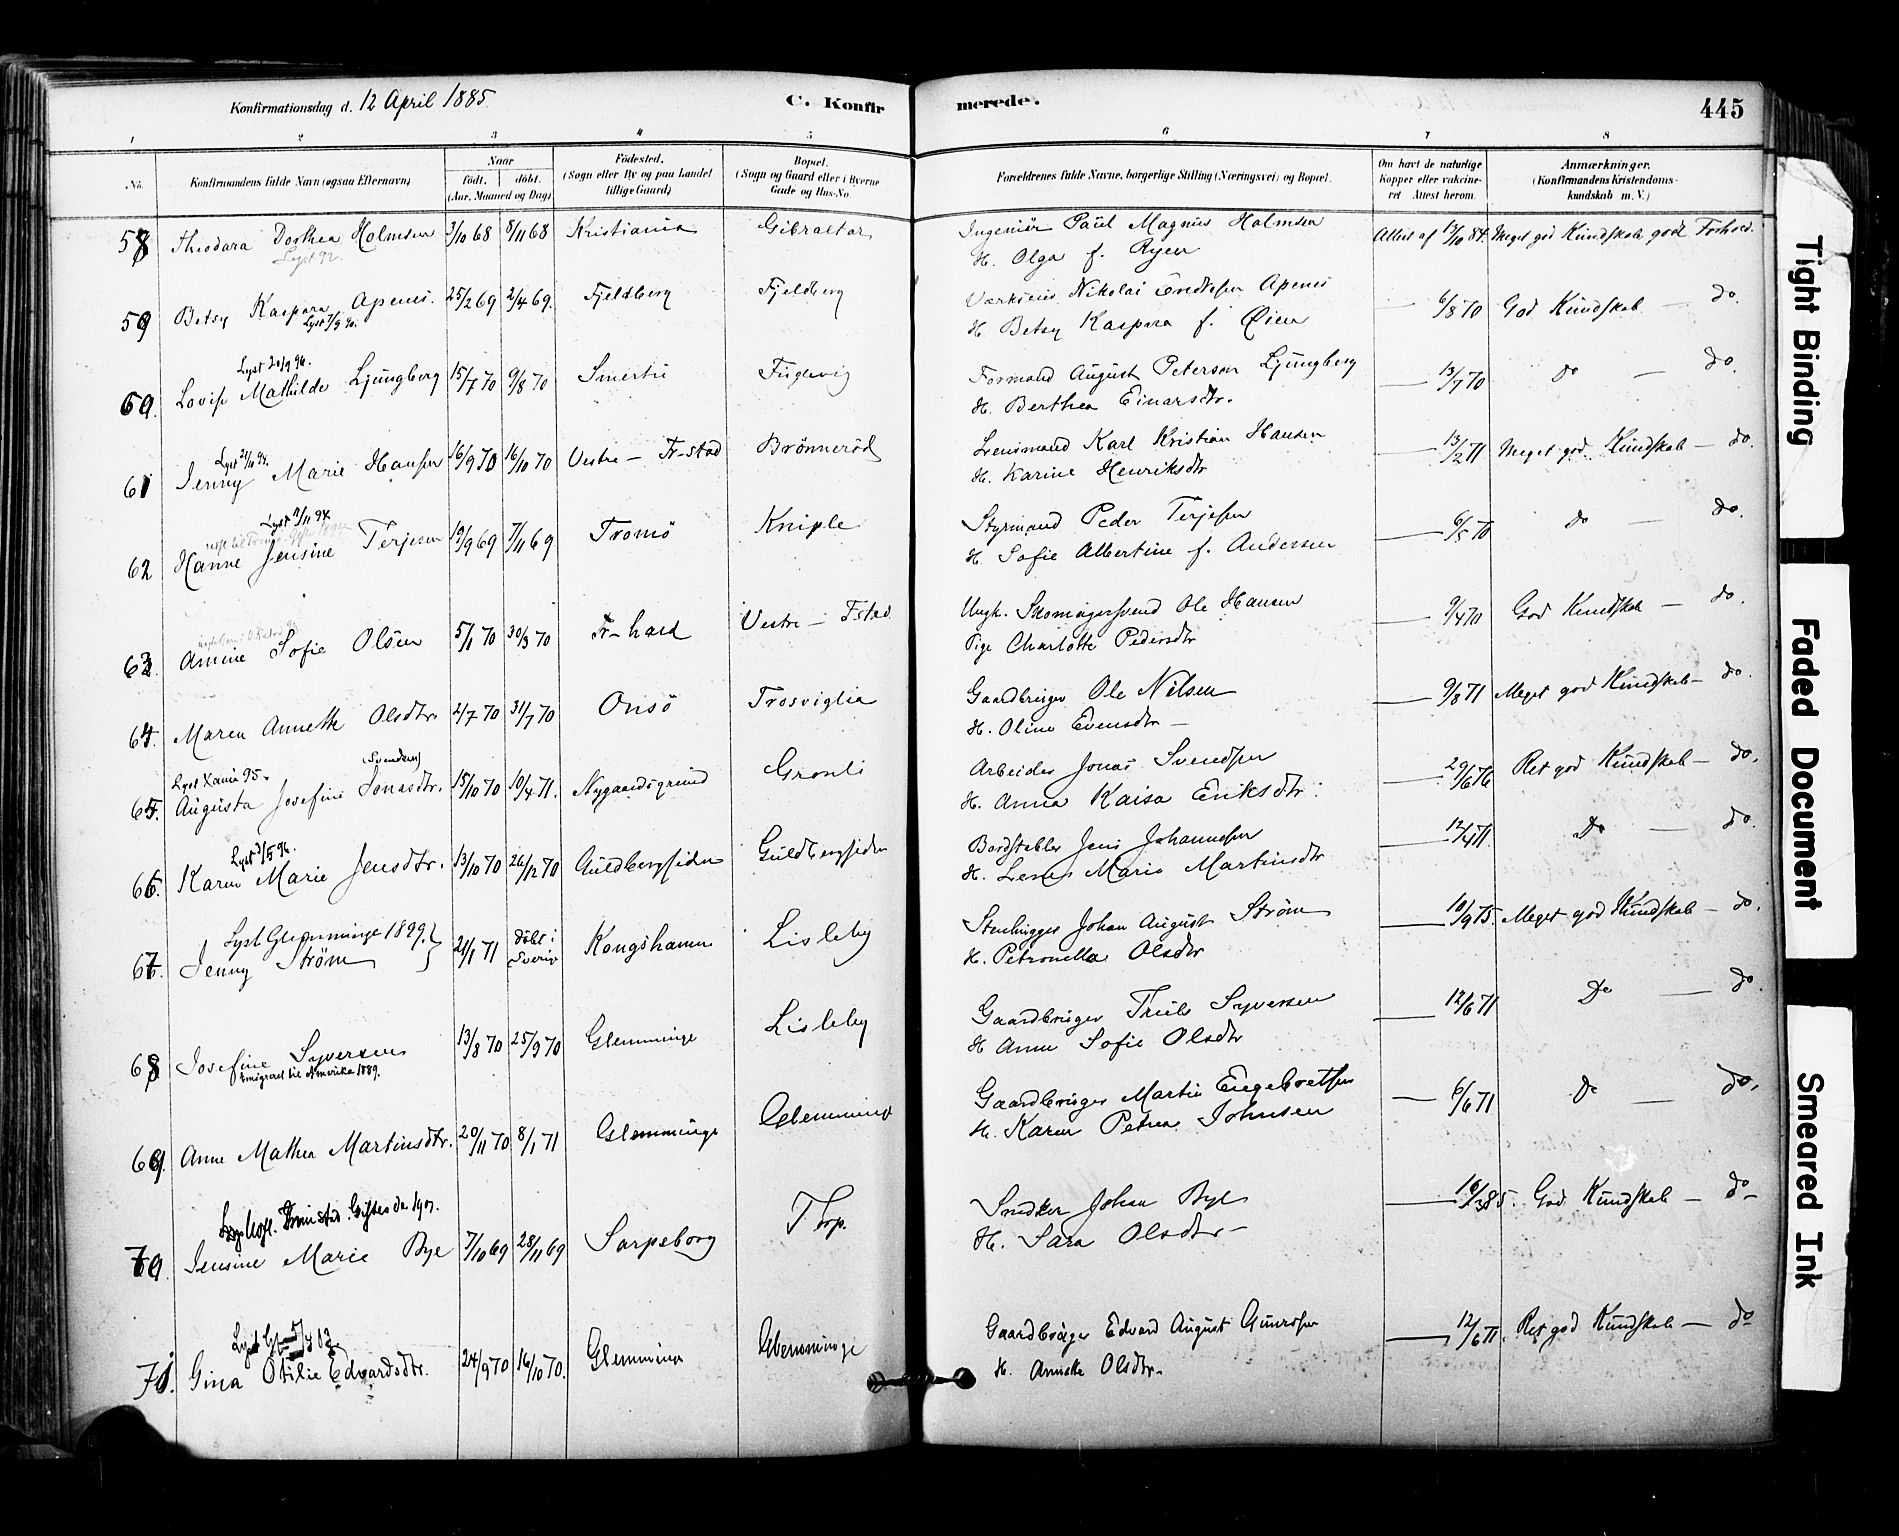 Konfirmationsdag d. 12 April 1885.
C. Konfir
merede.
445
1 2 3 4 5 6 7 8
No.
Konfirmandens fulde Navn (ogsaa Efternavn)
Naar
født. døbt.
(Aar, Maaned og Dag)
Fødested.
(Sogn eller By og paa Landet
tillige Gaard)
Bopæl.
(Sogn og Gaard eller i Byerne
Gade og Hus-No.
Forældrenes fulde Navne, borgerlige Stilling (Næringsvei) og Bopæl.
Om havt de naturlige
Kopper eller vaccine-
ret Attest herom.
Anmærkninger.
(Konfirmandens Kristendoms-
kundskab m. V.)
58 Theodara Dorthea Holmsen 3/10 68 8/11 68 Kristiania Gibraltar Ingeniør Paul Magnus Holmsen Attest af 13/10 84. Meget god Kundskab god Forhold.
Lyst 92.
H. Olga f. Ryen
59 Betsy Kaspara Apenes. 25/2 69 2/4 69. Fjeldberg Fjeldberg Nikolai Apenes 6/8 70 God Kundskab — do.
Lyst 7/9 90.
H. Betsy Kaspara f. Øien
Lyst 20/9 96.
60. Lovise Mathilde Ljungberg 15/7 70 9/8 70 Smertu Fuglevig Formand August Peterson Ljungberg 13/7 70 do — do.
H. Berthea Einarsdtr.
61 Jenny Marie Hansen 16/9 70 16/10 70 Vestre — Fr-stad Brønnerød Lensmand Karl Kristian Hansen 13/2 71 Meget god Kundskab — do.
H. Karine Henriksdtr
Lyst 11/11 94.
62 Hanne Jensine Terjesen 19/9 69 7/11 69 Tromø Kniple Styrmand Peder Terjesen 6/5 70 do — do.
H. Sofie Albertine f. Andersen
63 Amine Sofie Olsen 5/1 70 30/3 70 Fr-hald Vestre — Fstad Ungk. Skomagersvend Ole Hansen 9/4 70 God Kundskab — do.
Pige Charlotte Pedersdtr
64. Maren Annette Olsdtr. 2/7 70 31/7 70 Onsø Trosviglia Gaardbruger Ole Nilsen 9/8 71 Meget god Kundskab — do.
H. Oline Evensdtr —
Lyst Xania 95. (Svendsen)
65. Augusta Josefine Jonasdtr. 15/10 70 10/4 71. Nygaardsgrund Grønli Arbeider Jonas Svendsen 29/6 76 Ret god Kundskab — do.
H. Anna Kaisa Eriksdtr.
Lyst 3/5 96.
66. Karen Marie Jensdtr. 13/10 70 26/12 70 Guldbergsiden Guldbergsiden Bordstabler Jens Johannesen 12/4 71. Do — do.
H. Lena Marie Martinsdtr
Lyst Glemminge 1899.
67. Jenny Strøm 21/1 71 døbt i Sverig Kongshamn Lisleby Stenhugger Johan August Strøm 10/9 75. Meget god Kundskab — do.
H. Petronella Olsdtr
68 Josefine Syversen 13/8 70 25/9 70 Glemminge Lisleby Gaardbruger Truls Syversen 12/6 71 Do — do.
Emigreret til Amerika 1889.
H. Anne Sofie Olsdtr
69. Anne Mathea Martinsdtr. 20/11 70 8/1 71 Glemminge Glemminge Gaardbruger Martin Engebretsen 6/6 71 Do — do.
H. Karen Petrea Johnsen
70. Jensine Marie Bye 7/10 69 28/11 69 Sarpsborg Thorp. Snedker Johan Bye 16/3 85. God Kundskab — do
H. Sara Olsdtr —
71. Gina Otilie Edvardsdtr. 24/9 70 16/10 70. Glemminge Glemminge Gaardbruger Edvard August 12/6 71. Ret god Kundskab — do
H. Annette Olsdtr.
Tight Binding
Faded Document
Smeared Ink